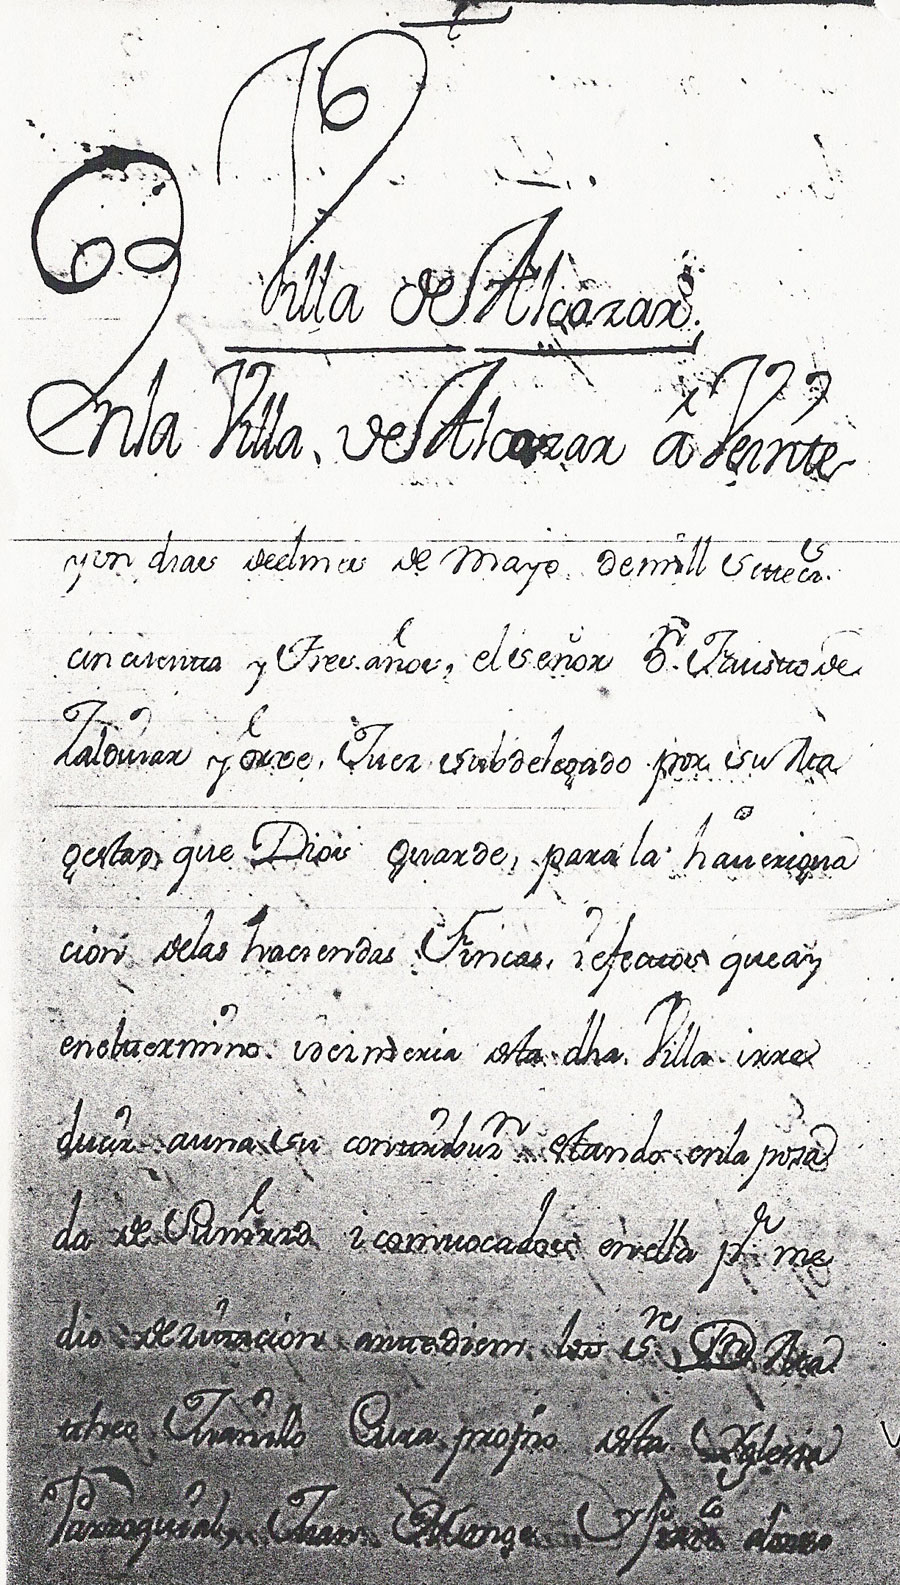 Villa de Alcazar.
Enla Villa, de Alcazar á Veinte
y un dias delmes de Mayo demill settecs.
cinquenta y Tres años, el señor Dn. Fausto de
Zaldivar y Orve, Juez subdelegado por su Ma
gestad, que Dios guarde, para la haverigua
cion delas haciendas Fincas, i efectos que ay
eneltermino. i dezmeria desta dha. Villa. irre
ducir auna su contribuzn. estando enla posa
da de i convocados enella pr. me
dio de zitacion antediem los Ss.res Dn. Ma
theo Cura propio desta Yglesia
Parroquial, Juan